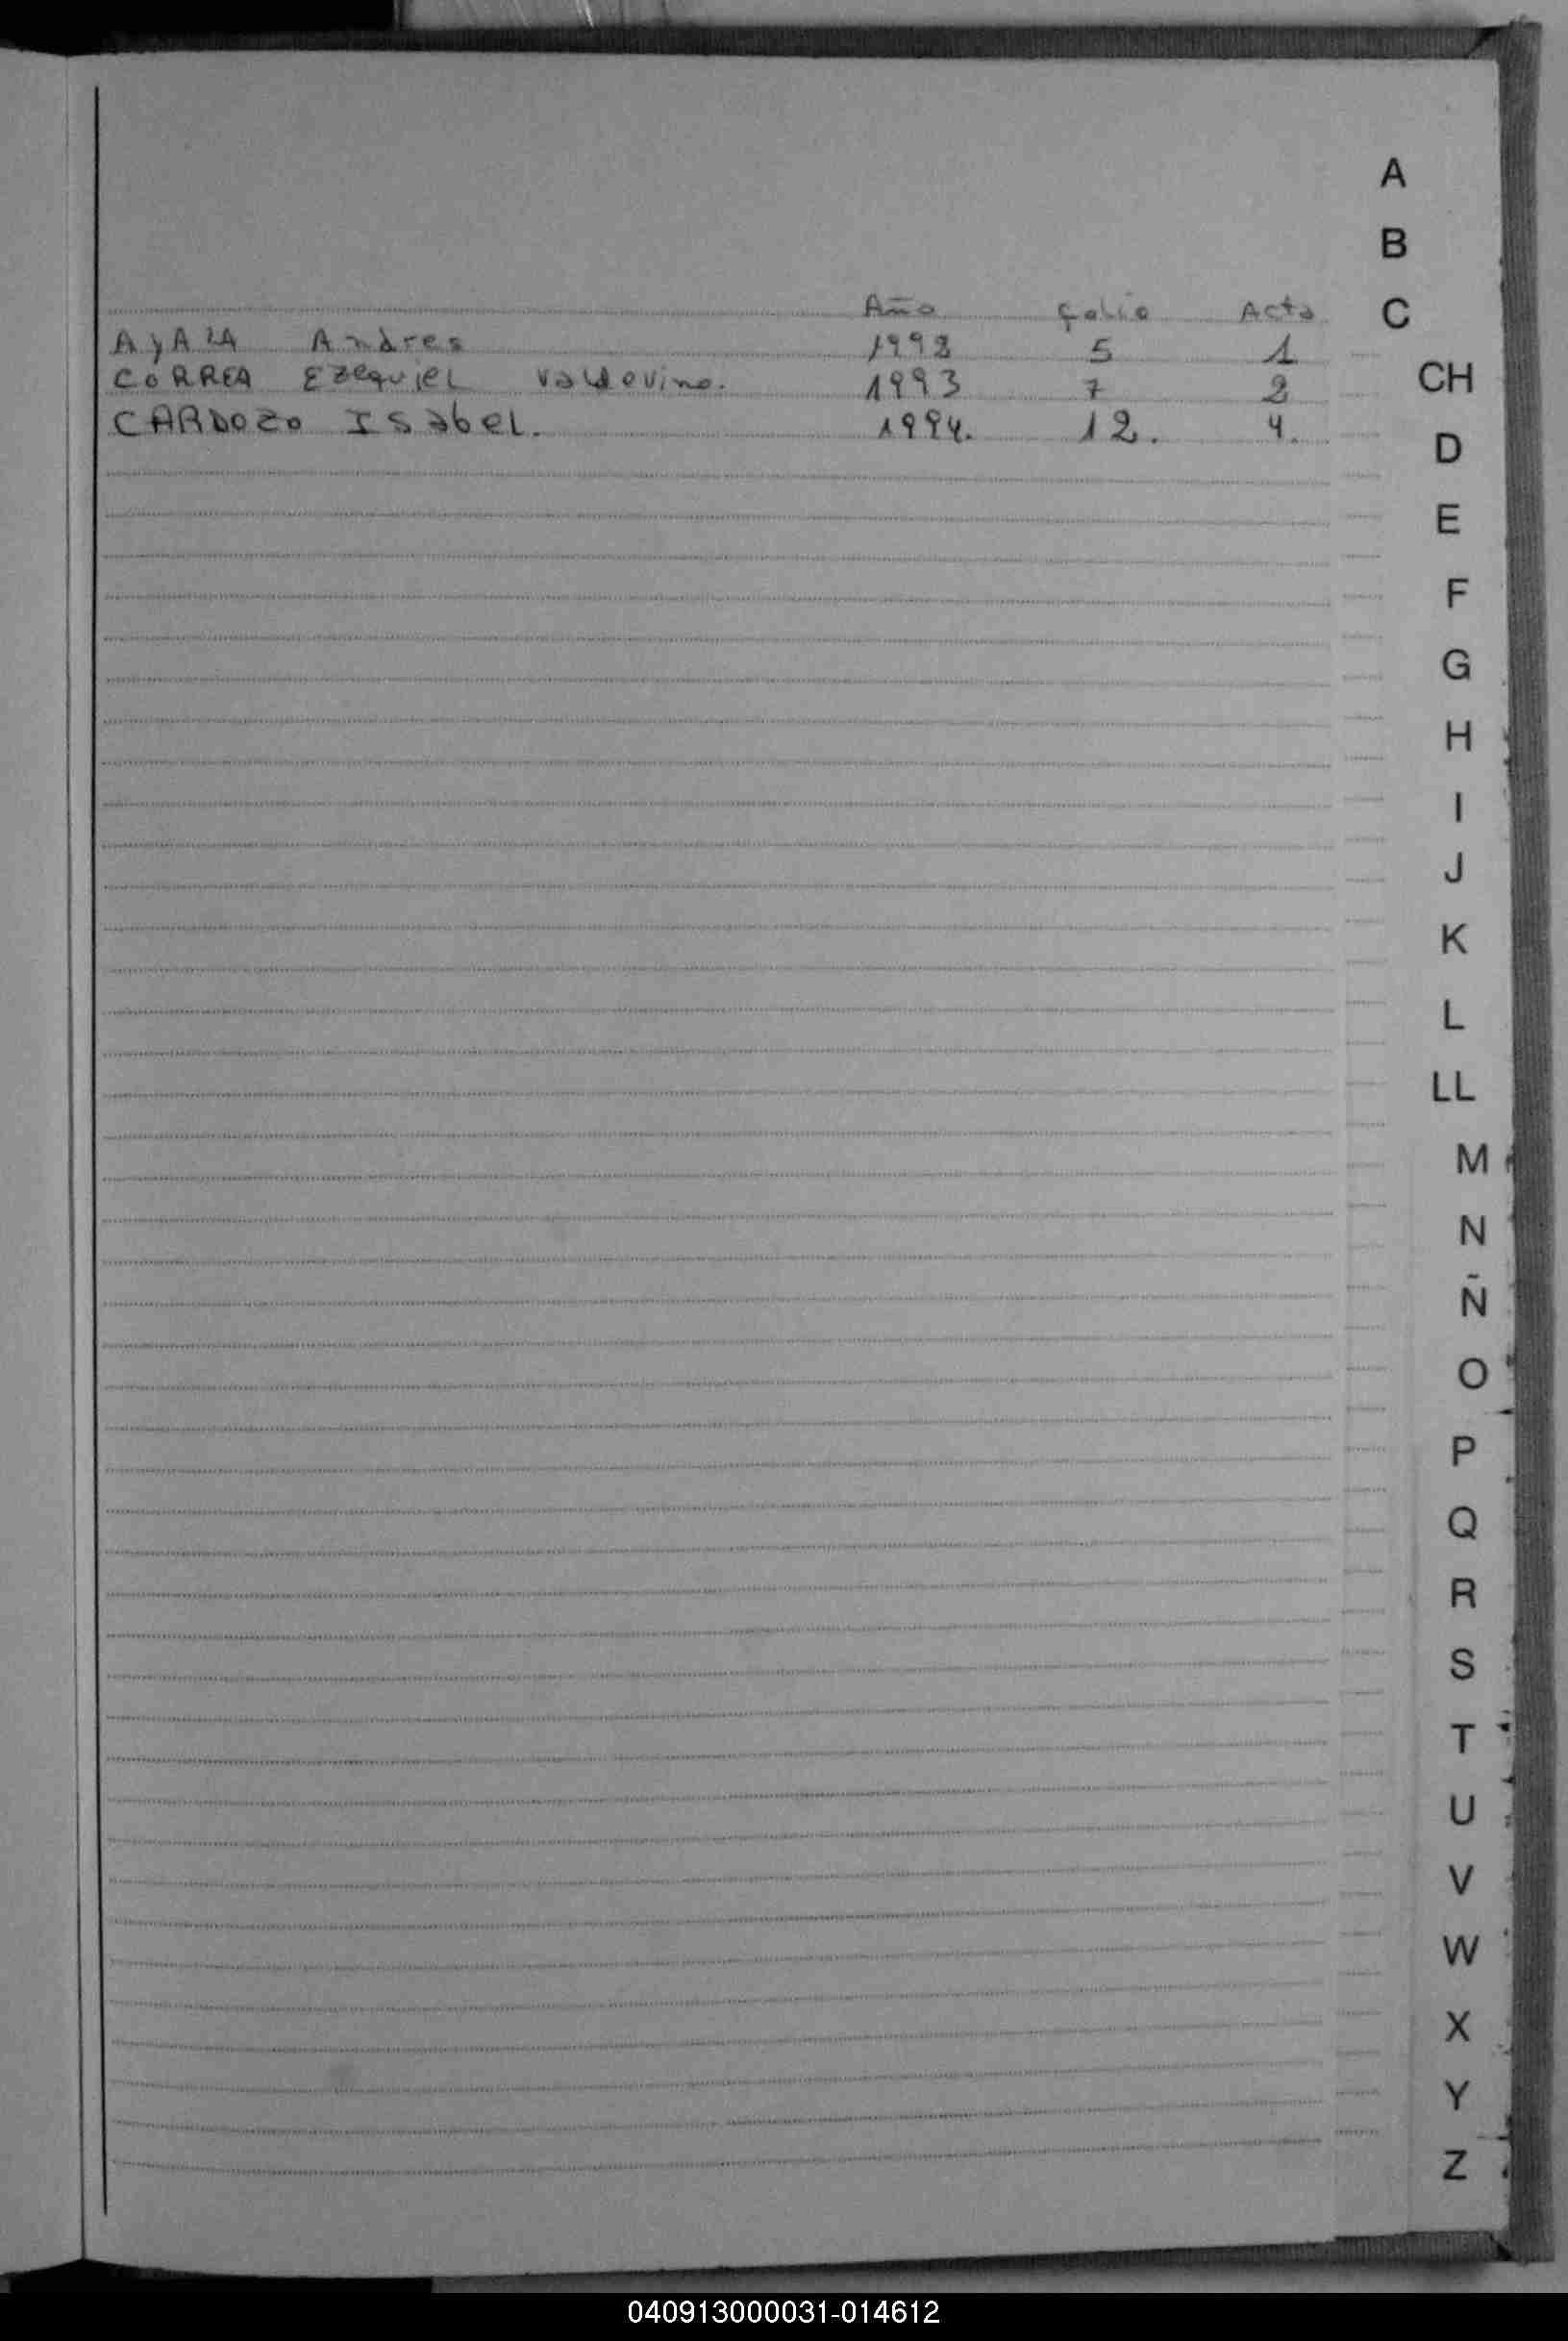 Año folio Acta
AyALA Andres 1993 5 1
CORREA EzequieL Valdovino. 1993 7 2
CARDOZO ISabeL. 1994. 12. 4.
A
B
C
CH
D
E
F
G
H
I
J
K
L
LL
M
N
Ñ
O
P
Q
R
S
T
U
V
W
X
Y
Z
040913000031-014612